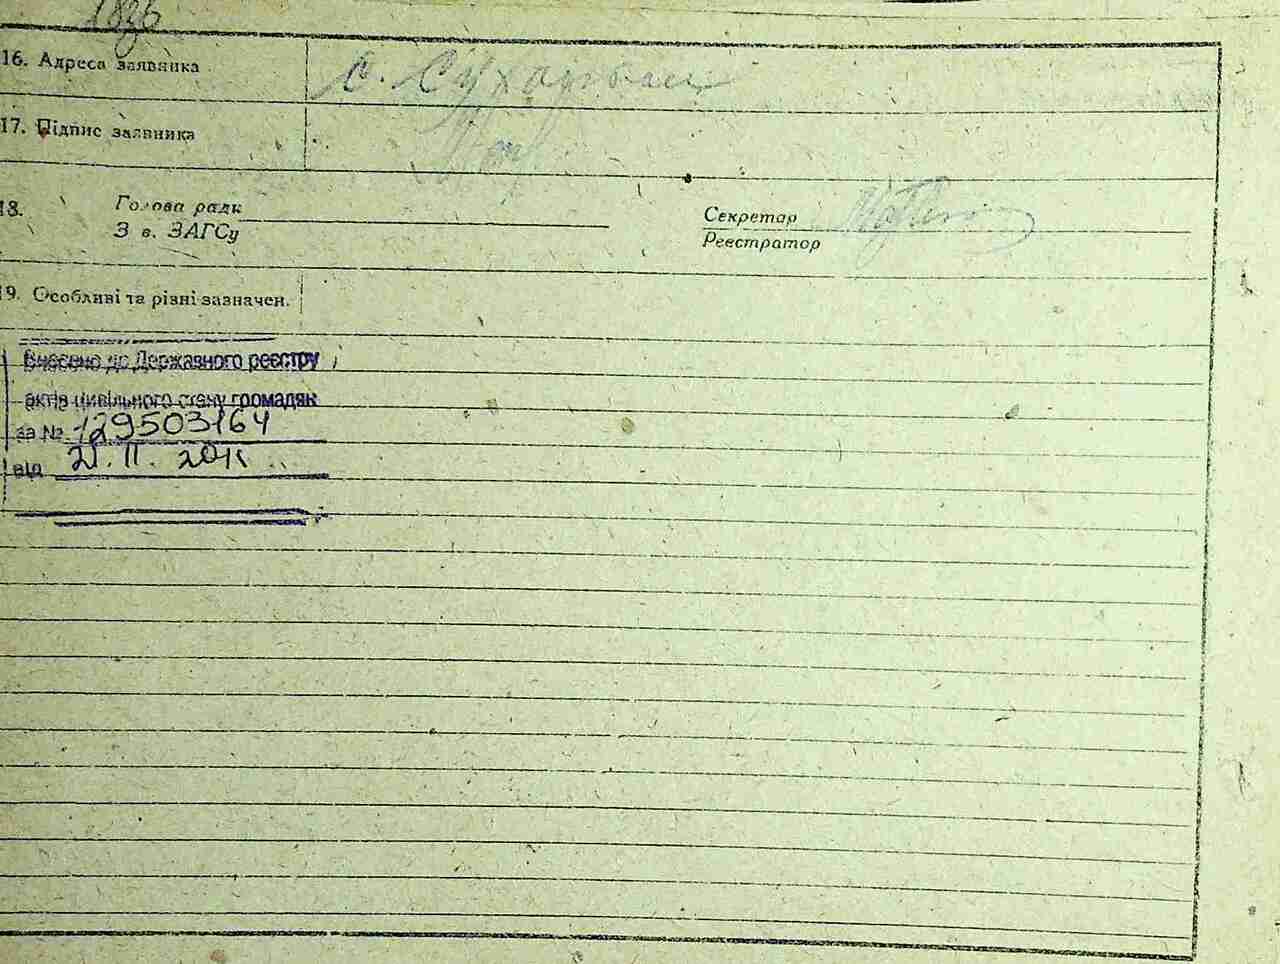 16. Адреса заявника
17. Підпис заявника
18. Голова ради
З в. ЗАГСу
Секретар
Реєстратор
19. Особливі та різні зазначен.
Внесено до Державного реєстру
актів цивільного стану громадян
за № 129503164
від 21. 11. 2011